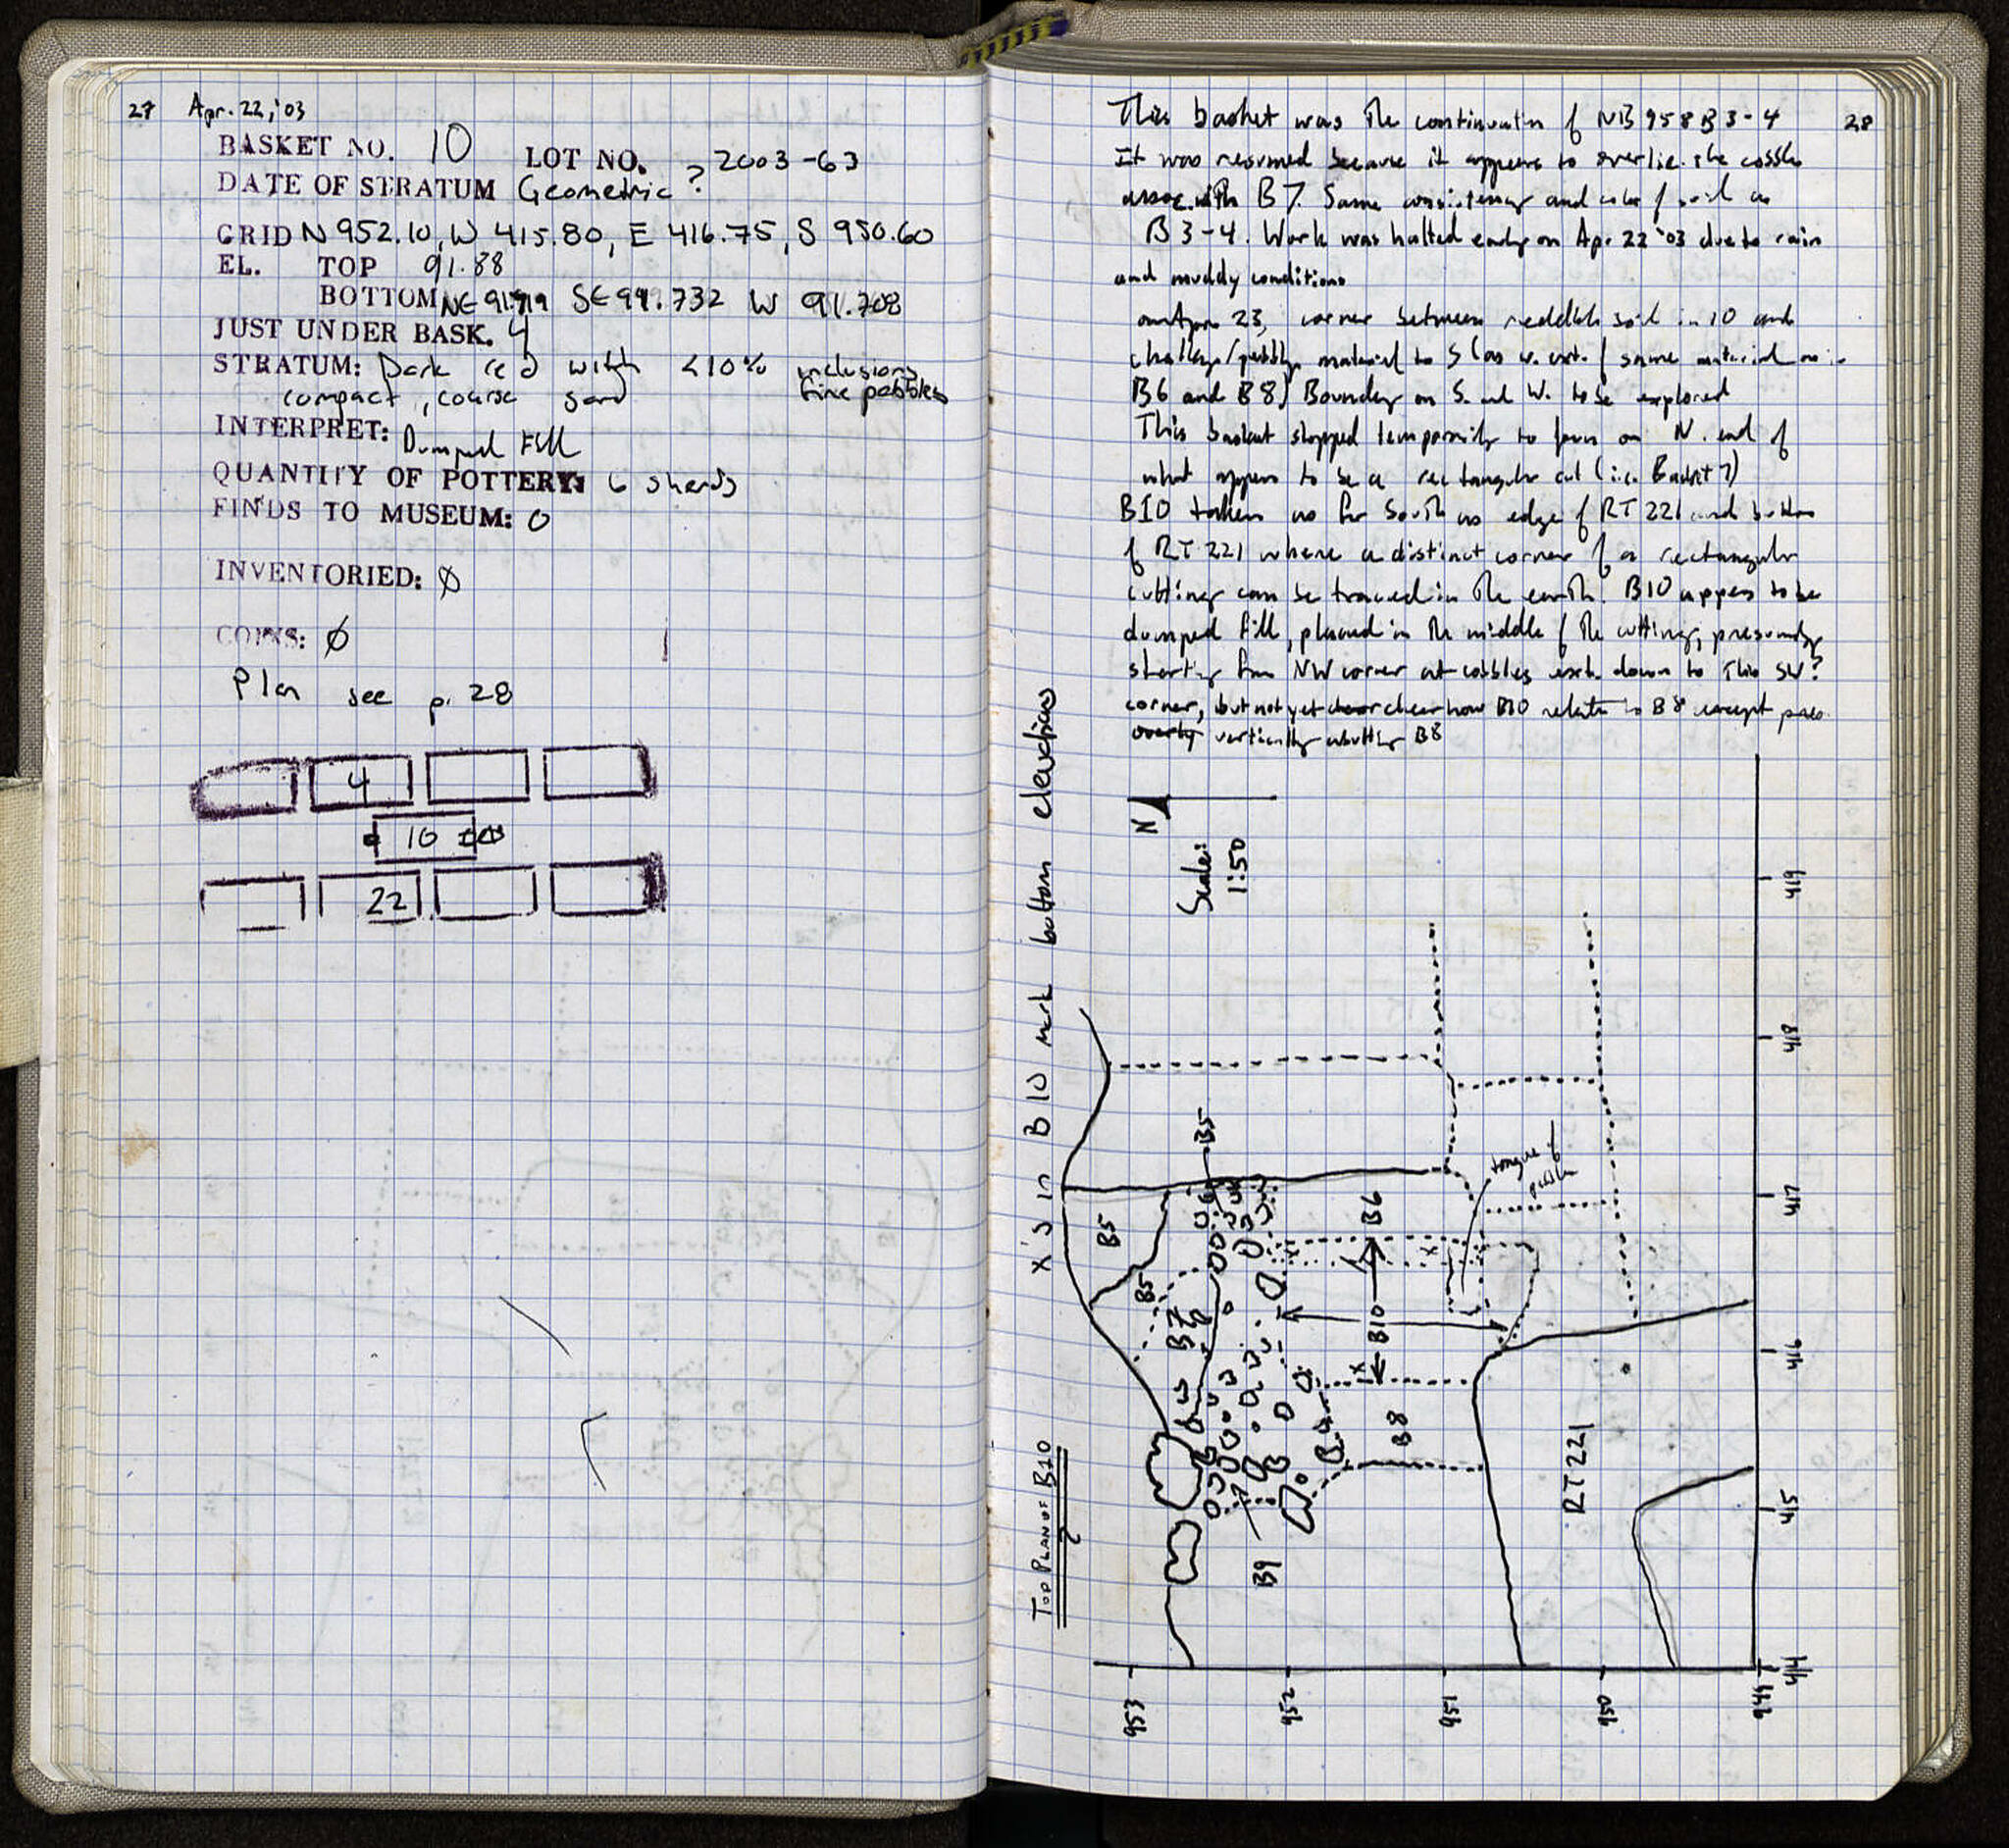 27 Apr. 22, '03
BASKET NO. 10 LOT NO. 2003-63
DATE OF STRATUM Geometric?
GRID N 952.10, W 415.80, E 416.75, S 950.60
EL. TOP 91.88
BOTTOM NE SE 732 W 91.708
JUST UNDER BASK. 4
STRATUM: Dark red with <10% inclusions
compact, coarse sand fine pebbles
INTERPRET: Dumped Fill
QUANTITY OF POTTERY: 6 sherds
FINDS TO MUSEUM: 0
INVENTORIED: Ø
COINS: Ø
Plan see p. 28
4
10
22
28
This basket was the continuation of NB 958 B 3-4
It was resumed because it appears to overlie the cobbles
assoc. with B7. Same consistency and color of soil as
B 3-4. Work was halted early on Apr 22 '03 due to rain
and muddy conditions
on Apr 23, corner between reddish soil in 10 and
chalky/pebbly material to S (as w. ext. of same material as in
B6 and B8) Boundary on S. and W. to be explored
This basket stopped temporarily to focus on N. end of
what appears to be a rectangular cut (i.e. Basket 7)
B10 taken as far South as edge of RT 221 and bottom
of RT 221 where a distinct corner of a rectangular
cutting can be traced in the earth. B10 appears to be
dumped fill, placed in the middle of the cutting, presumably
starting from NW corner at cobbles down to this SW?
corner, but not yet clear how B10 relates to B8 except
overly vertically abutting B8
X's in B10 mark bottom elevations
TOP PLAN OF B10
N
Scale:
1:50
B5
B5
B5
B7
B6
tongue of
B10
B8
B9
RT 221
419
418
417
416
415
414
953
952
951
950
949